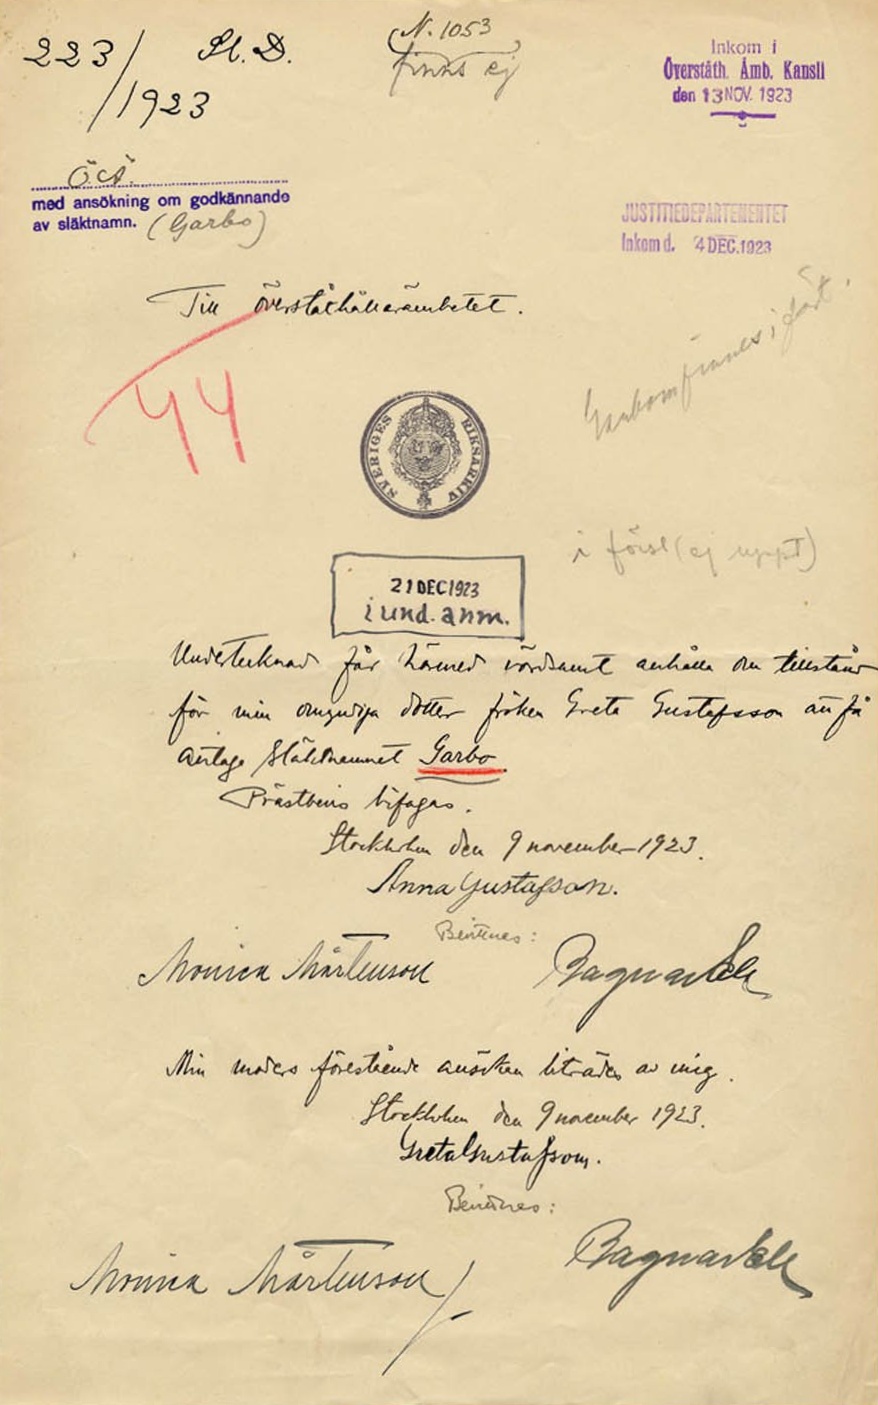 223/1923
St. D.
N. 1053
finns ej
Inkom i
Överståth. Ämb. Kansli
den 13 NOV. 1923
Ö.Ä.
med ansökning om godkännande
av släktnamn. (Garbo)
JUSTITIEDEPARTEMENTET
Inkom d. 4 DEC. 1923
Till Överståthållarämbetet.
44
SVERIGES RIKSARKIV
i först (ej uppt)
21 DEC 1923
i und. anm.
Undertecknad får härmed vördsamt anhålla om tillstånd
för min omyndiga dotter fröken Greta Gustafsson att få
antaga släktnamnet Garbo
Prästbevis bifogas.
Stockholm den 9 november 1923.
Anna Gustafson.
Bevittnes:
Monica Mårtenson
Min moders förestående ansökan biträdes av mig.
Stockholm den 9 november 1923.
Greta Gustafsson.
Bevittnes:
Monica Mårtenson